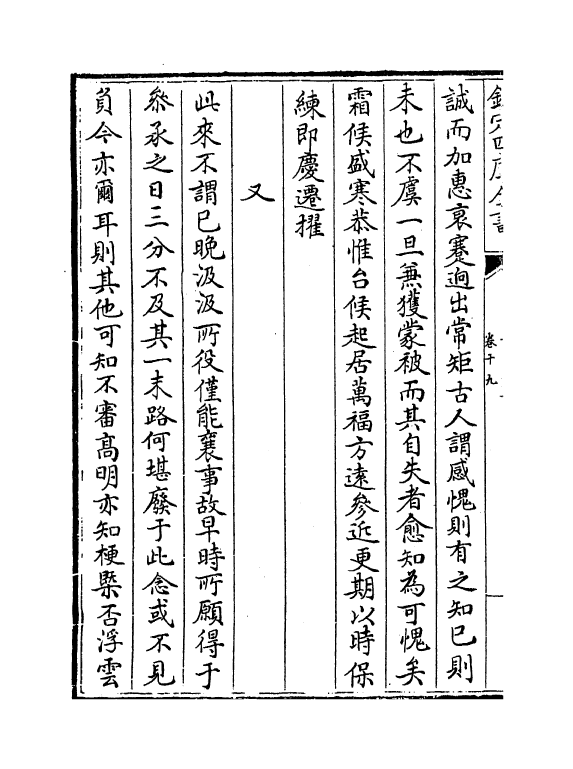 欽定四庫全書
卷十九
誠而加惠衰蹇逈出常矩古人謂感愧則有之知已則
未也不虞一旦兼獲蒙被而其自失者愈知為可愧矣
霜候盛寒恭惟台候起居萬福方遠參近更期以時保
練即慶遷擢
又
此來不謂已晚汲汲所役僅能襄事故早時所願得于
叅承之日三分不及其一末路何堪廢于此念或不見
負今亦爾耳則其他可知不審高明亦知梗槩否浮雲